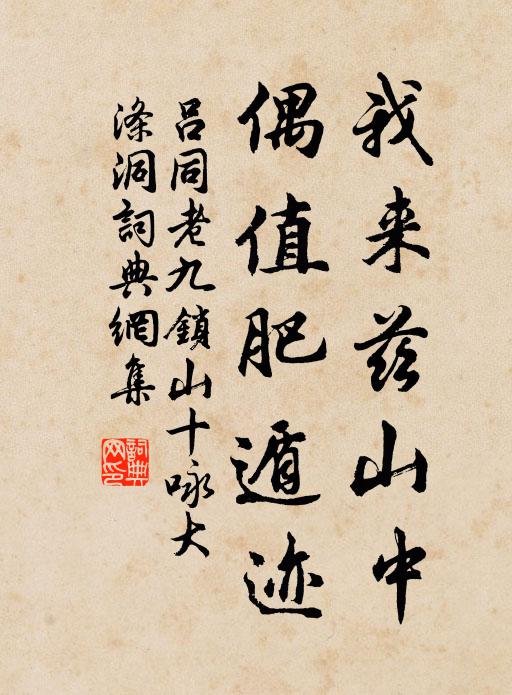 我来兹山中
偶值肥遁迹
吕同老九鎖山十咏大
涤洞詞典網集
詞典
网印